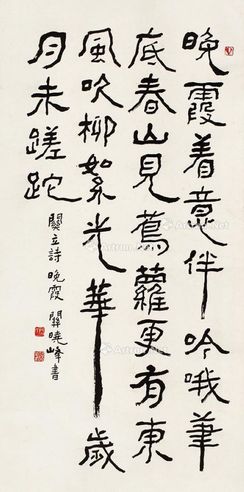 晚霞着意伴吟哦筆
底春山見蔦蘿更有東
風吹柳絮光華歲
月未蹉跎
關立詩晚霞 關曉峰書